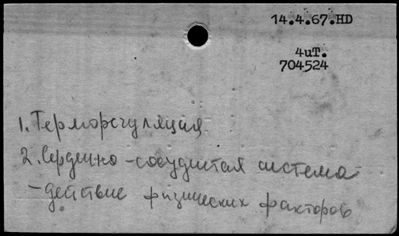 14.4.67.HD
4иТ.
704524
1. Терморегуляция.
2. Сердечно-сосудистая система
- действие физических факторов